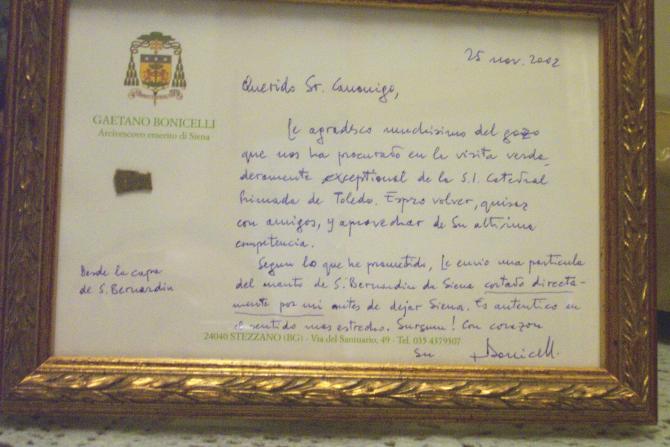 25 nov. 2002
Querido Sr. Canonigo,
GAETANO BONICELLI
Arcivescovo emerito di Siena
Le agradesco muchisimo del gozo
que nos ha procurado en la visita verda
deramente exceptional de la S.I. Catedral
Primada de Toledo. Espzo volver, quizas
con amigos, y aprovechar de Su altisima
competencia.
Segun lo que he prometido, Le envio una particula
del manto de S. Bernardin de Siena cortado directa-
mente por mi antes de dejar Siena. Es autentico en
el sentido mas estrecho. Sursum! Con corazon
Desde la capa
de S. Bernardin
24040 STEZZANO (BG) - Via del Santuario, 49 - Tel. 035 4379507
Su + Bonicelli